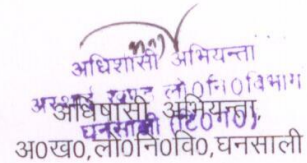 अधिशासी अभियन्ता
अस्थाई खण्ड लो०नि०विभाग
घनसाली (टि०ग०)
अधिषासी अभियन्ता,
अ०ख०,लो०नि०वि०,घनसाली